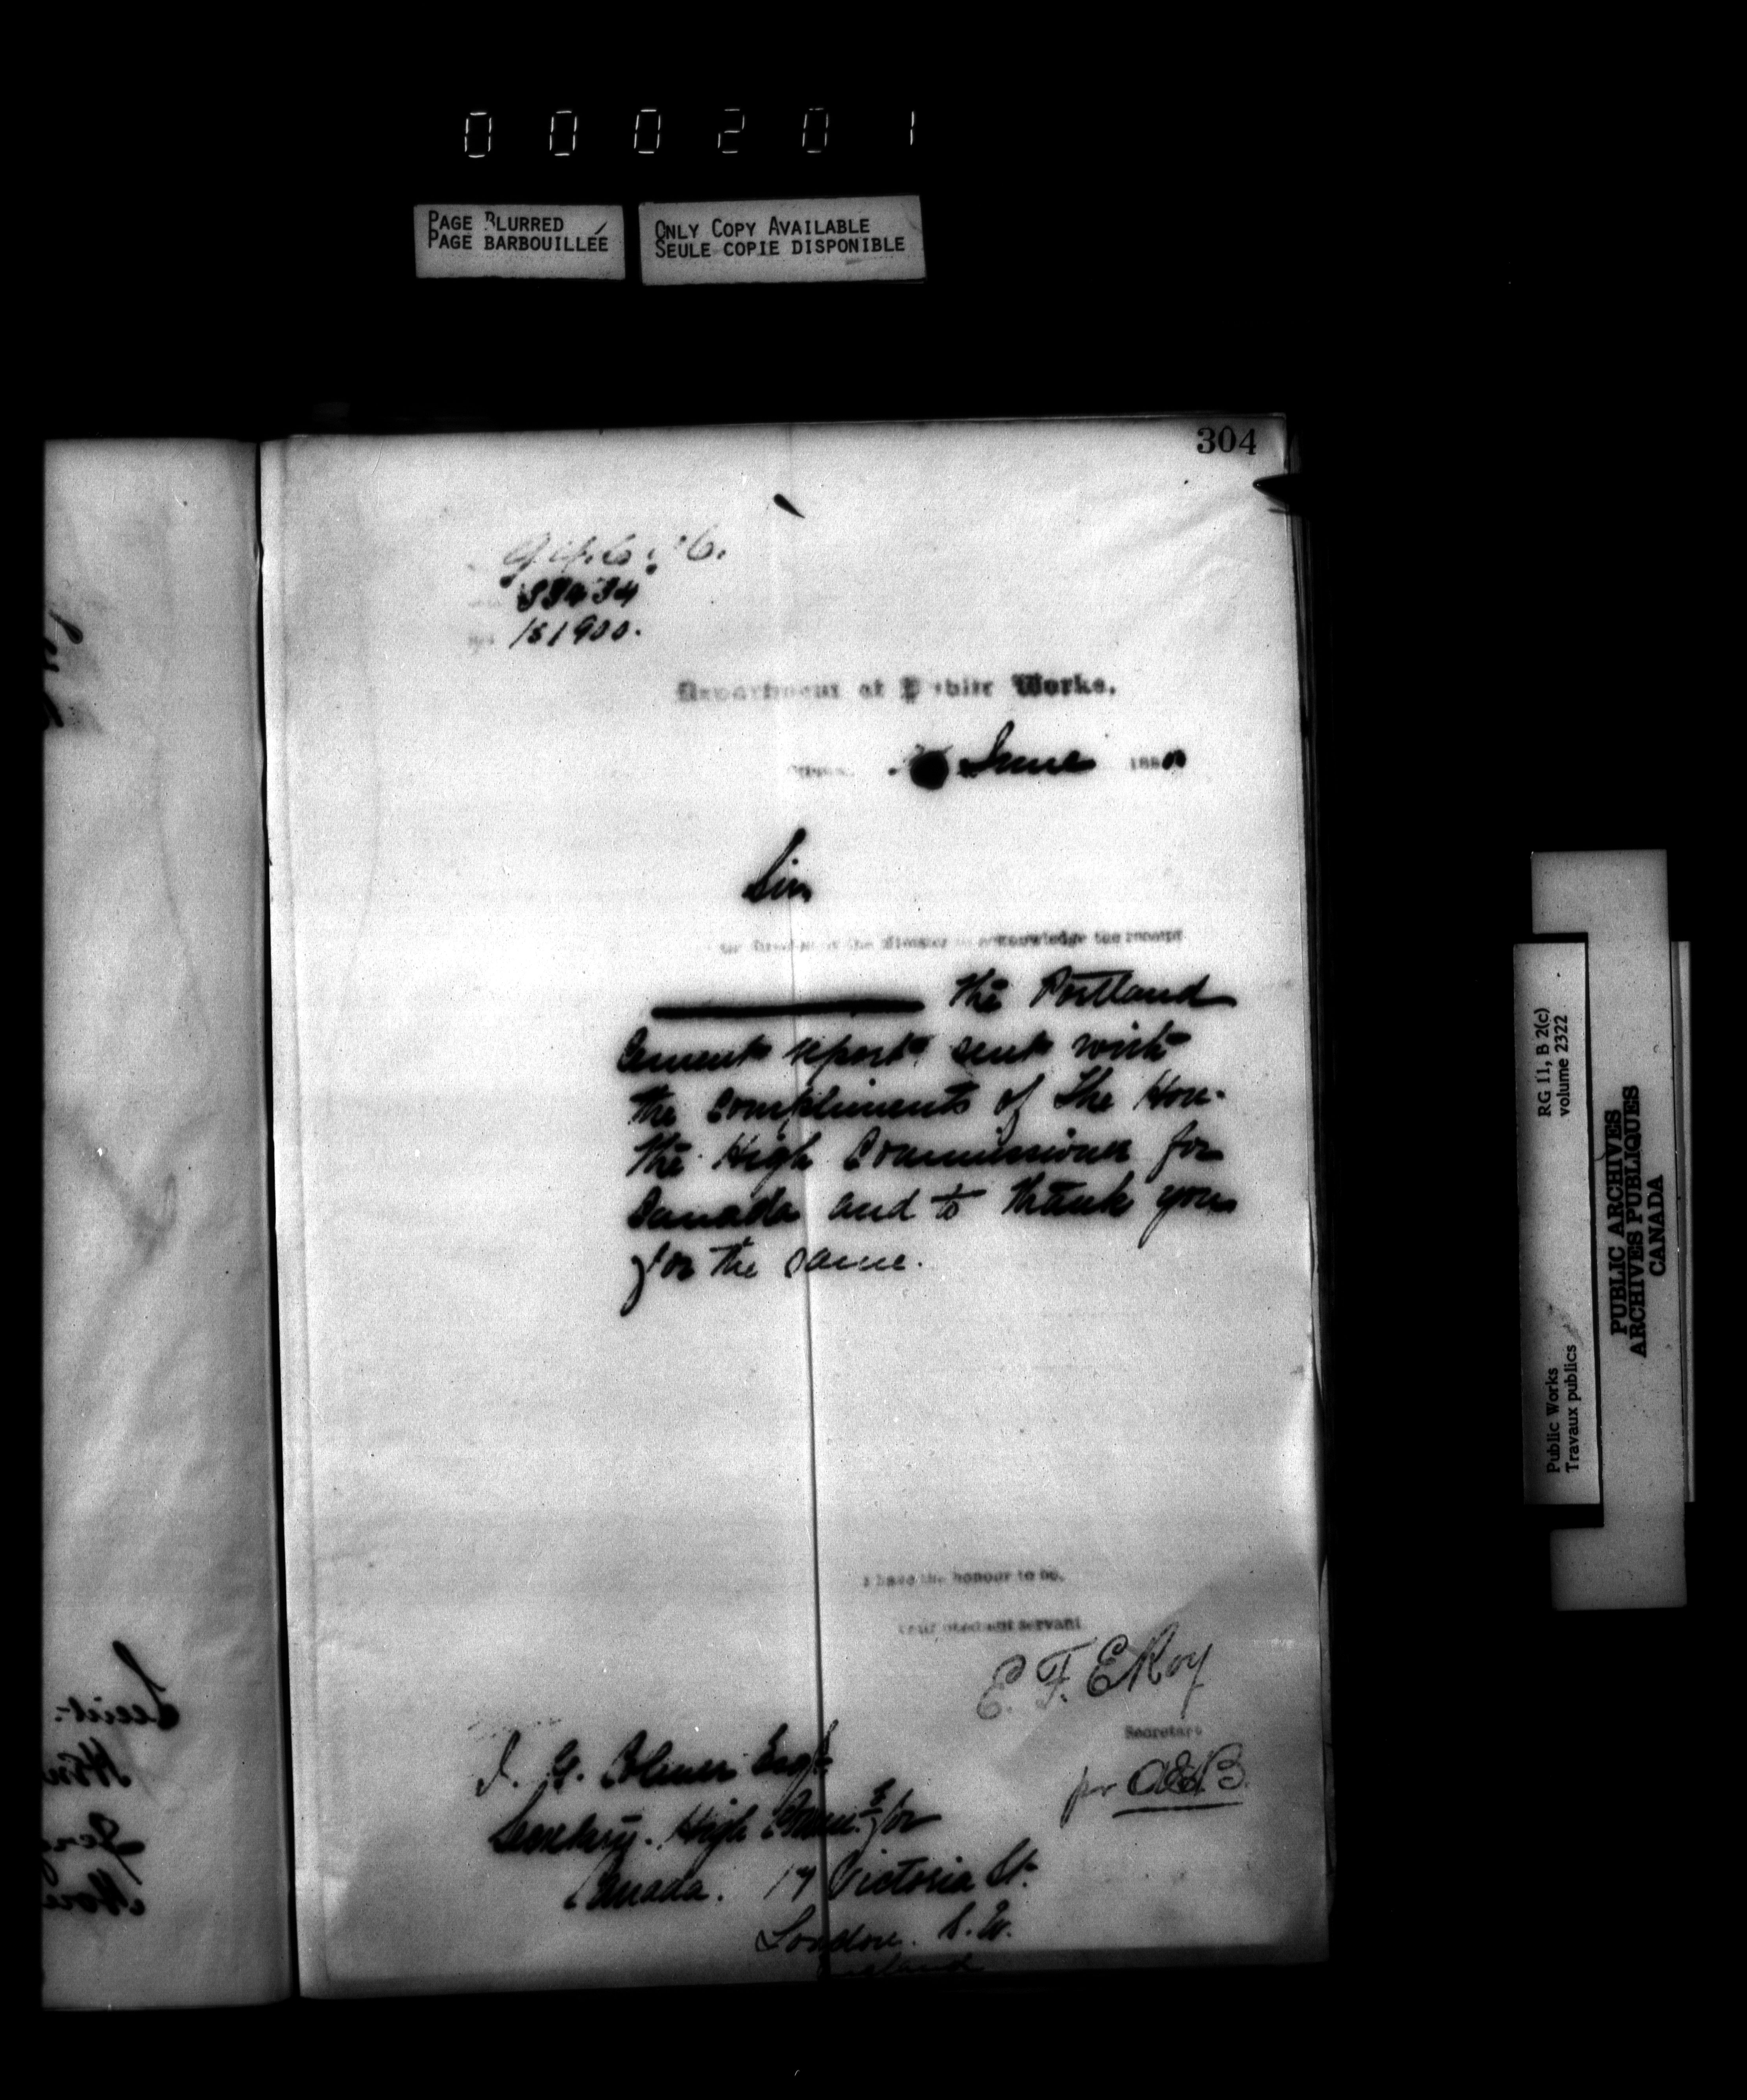 000201
PAGE BLURRED
PAGE BARBOUILLÉE
ONLY COPY AVAILABLE
SEULE COPIE DISPONIBLE
304
181900.
Department of Public Works.
Ottawa. June 188
Sir
the Minister to acknowledge the receipt
the Portland
Cement report sent with
the compliments of the Hon.
the High Commissioner for
Canada and to thank you
for the same.
I have the honour to be,
Your obedient servant
E. F. E. Roy
Secretary
for A.E.B.
J. G. Colmer Esqre
Secretary. High Commr for
Canada. 17 Victoria St.
London. S.W.
England
RG 11, B 2(c)
volume 2322
Public Works
Travaux publics
PUBLIC ARCHIVES
ARCHIVES PUBLIQUES
CANADA